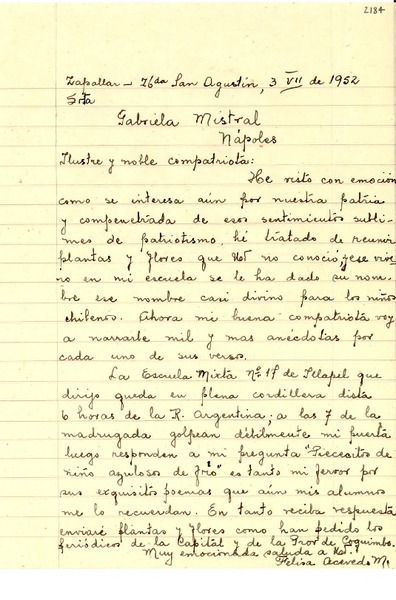 2184
Zapallar - Hda San Agustin, 3 VII de 1952
Srta
Gabriela Mistral
Nápoles
Ilustre y noble compatriota:
He visto con emoción
como se interesa aún por nuestra patria
y compenetrada de esos sentimientos subli-
mes de patriotismo, hé tratado de reunir
plantas y flores que Ud no conoció, y ese vive-
ro en mi escuela se le ha dado su nom-
bre ese nombre casi divino para los niños
chilenos. Ahora mi buena compatriota voy
a narrarle mil y mas anécdotas por
cada uno de sus versos.
La Escuela Mixta Nº 17 de Illapel que
dirijo queda en plena cordillera dista
6 horas de la R. Argentina; a las 7 de la
madrugada golpean débilmente mi puerta
luego responden a mi pregunta "Piececitos de
niño azulosos de frio" es tanto mi fervor por
sus exquisitos poemas que aún mis alumnos
me lo recuerdan. En tanto reciba respuesta
enviaré plantas y flores como han pedido los
periódicos de la Capital y de la Prov de Coquimbo.
Muy emocionada saluda a Ud.
Felisa Acevedo M.